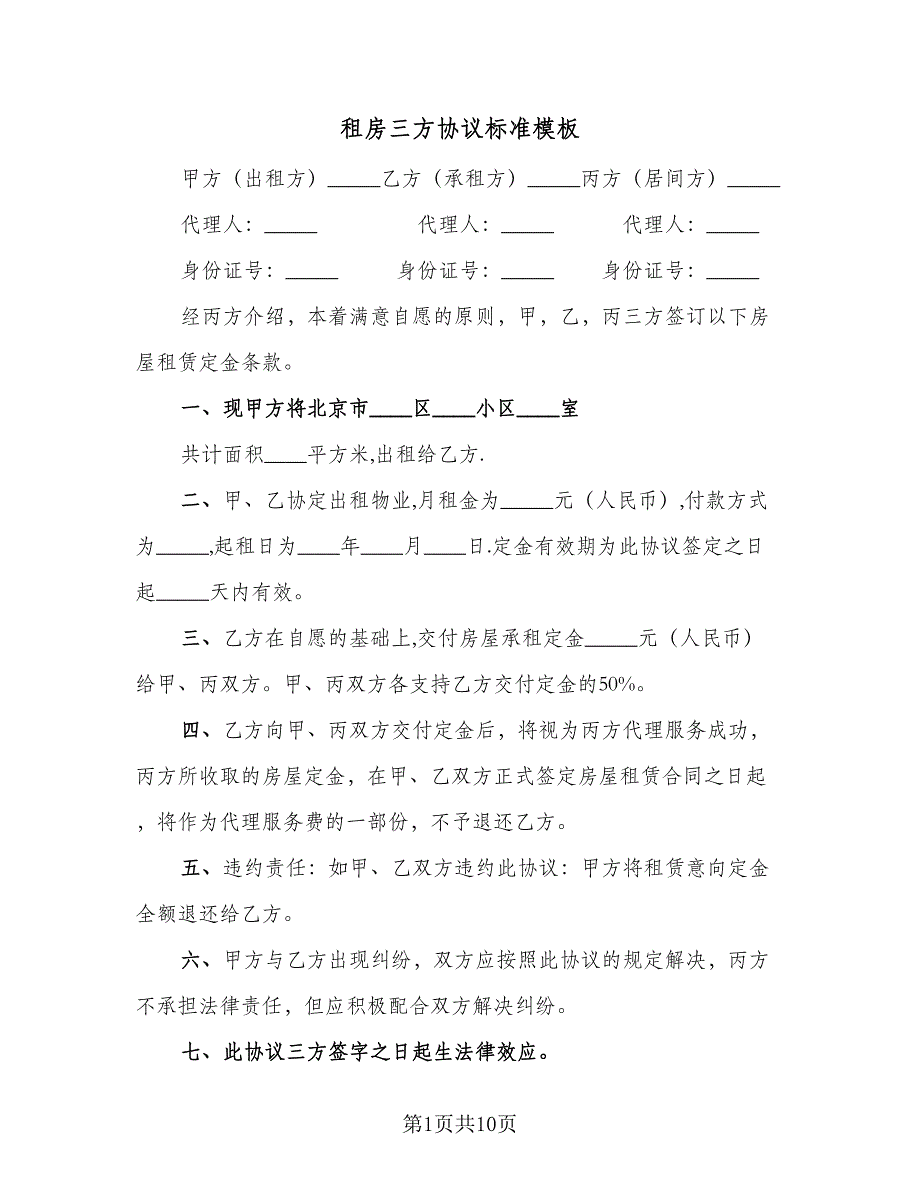 租房三方协议标准模板
甲方（出租方）_____乙方（承租方）_____丙方（居间方）_____
代理人：_____ 代理人：_____ 代理人：_____
身份证号：_____ 身份证号：_____ 身份证号：_____
经丙方介绍，本着满意自愿的原则，甲，乙，丙三方签订以下房
屋租赁定金条款。
一、现甲方将北京市____区____小区____室
共计面积____平方米,出租给乙方.
二、甲、乙协定出租物业,月租金为_____元（人民币）,付款方式
为_____,起租日为____年____月____日.定金有效期为此协议签定之日
起_____天内有效。
三、乙方在自愿的基础上,交付房屋承租定金_____元（人民币）
给甲、丙双方。甲、丙双方各支持乙方交付定金的50%。
四、乙方向甲、丙双方交付定金后，将视为丙方代理服务成功，
丙方所收取的房屋定金，在甲、乙双方正式签定房屋租赁合同之日起
，将作为代理服务费的一部份，不予退还乙方。
五、违约责任：如甲、乙双方违约此协议：甲方将租赁意向定金
全额退还给乙方。
六、甲方与乙方出现纠纷，双方应按照此协议的规定解决，丙方
不承担法律责任，但应积极配合双方解决纠纷。
七、此协议三方签字之日起生法律效应。
第1页共10页